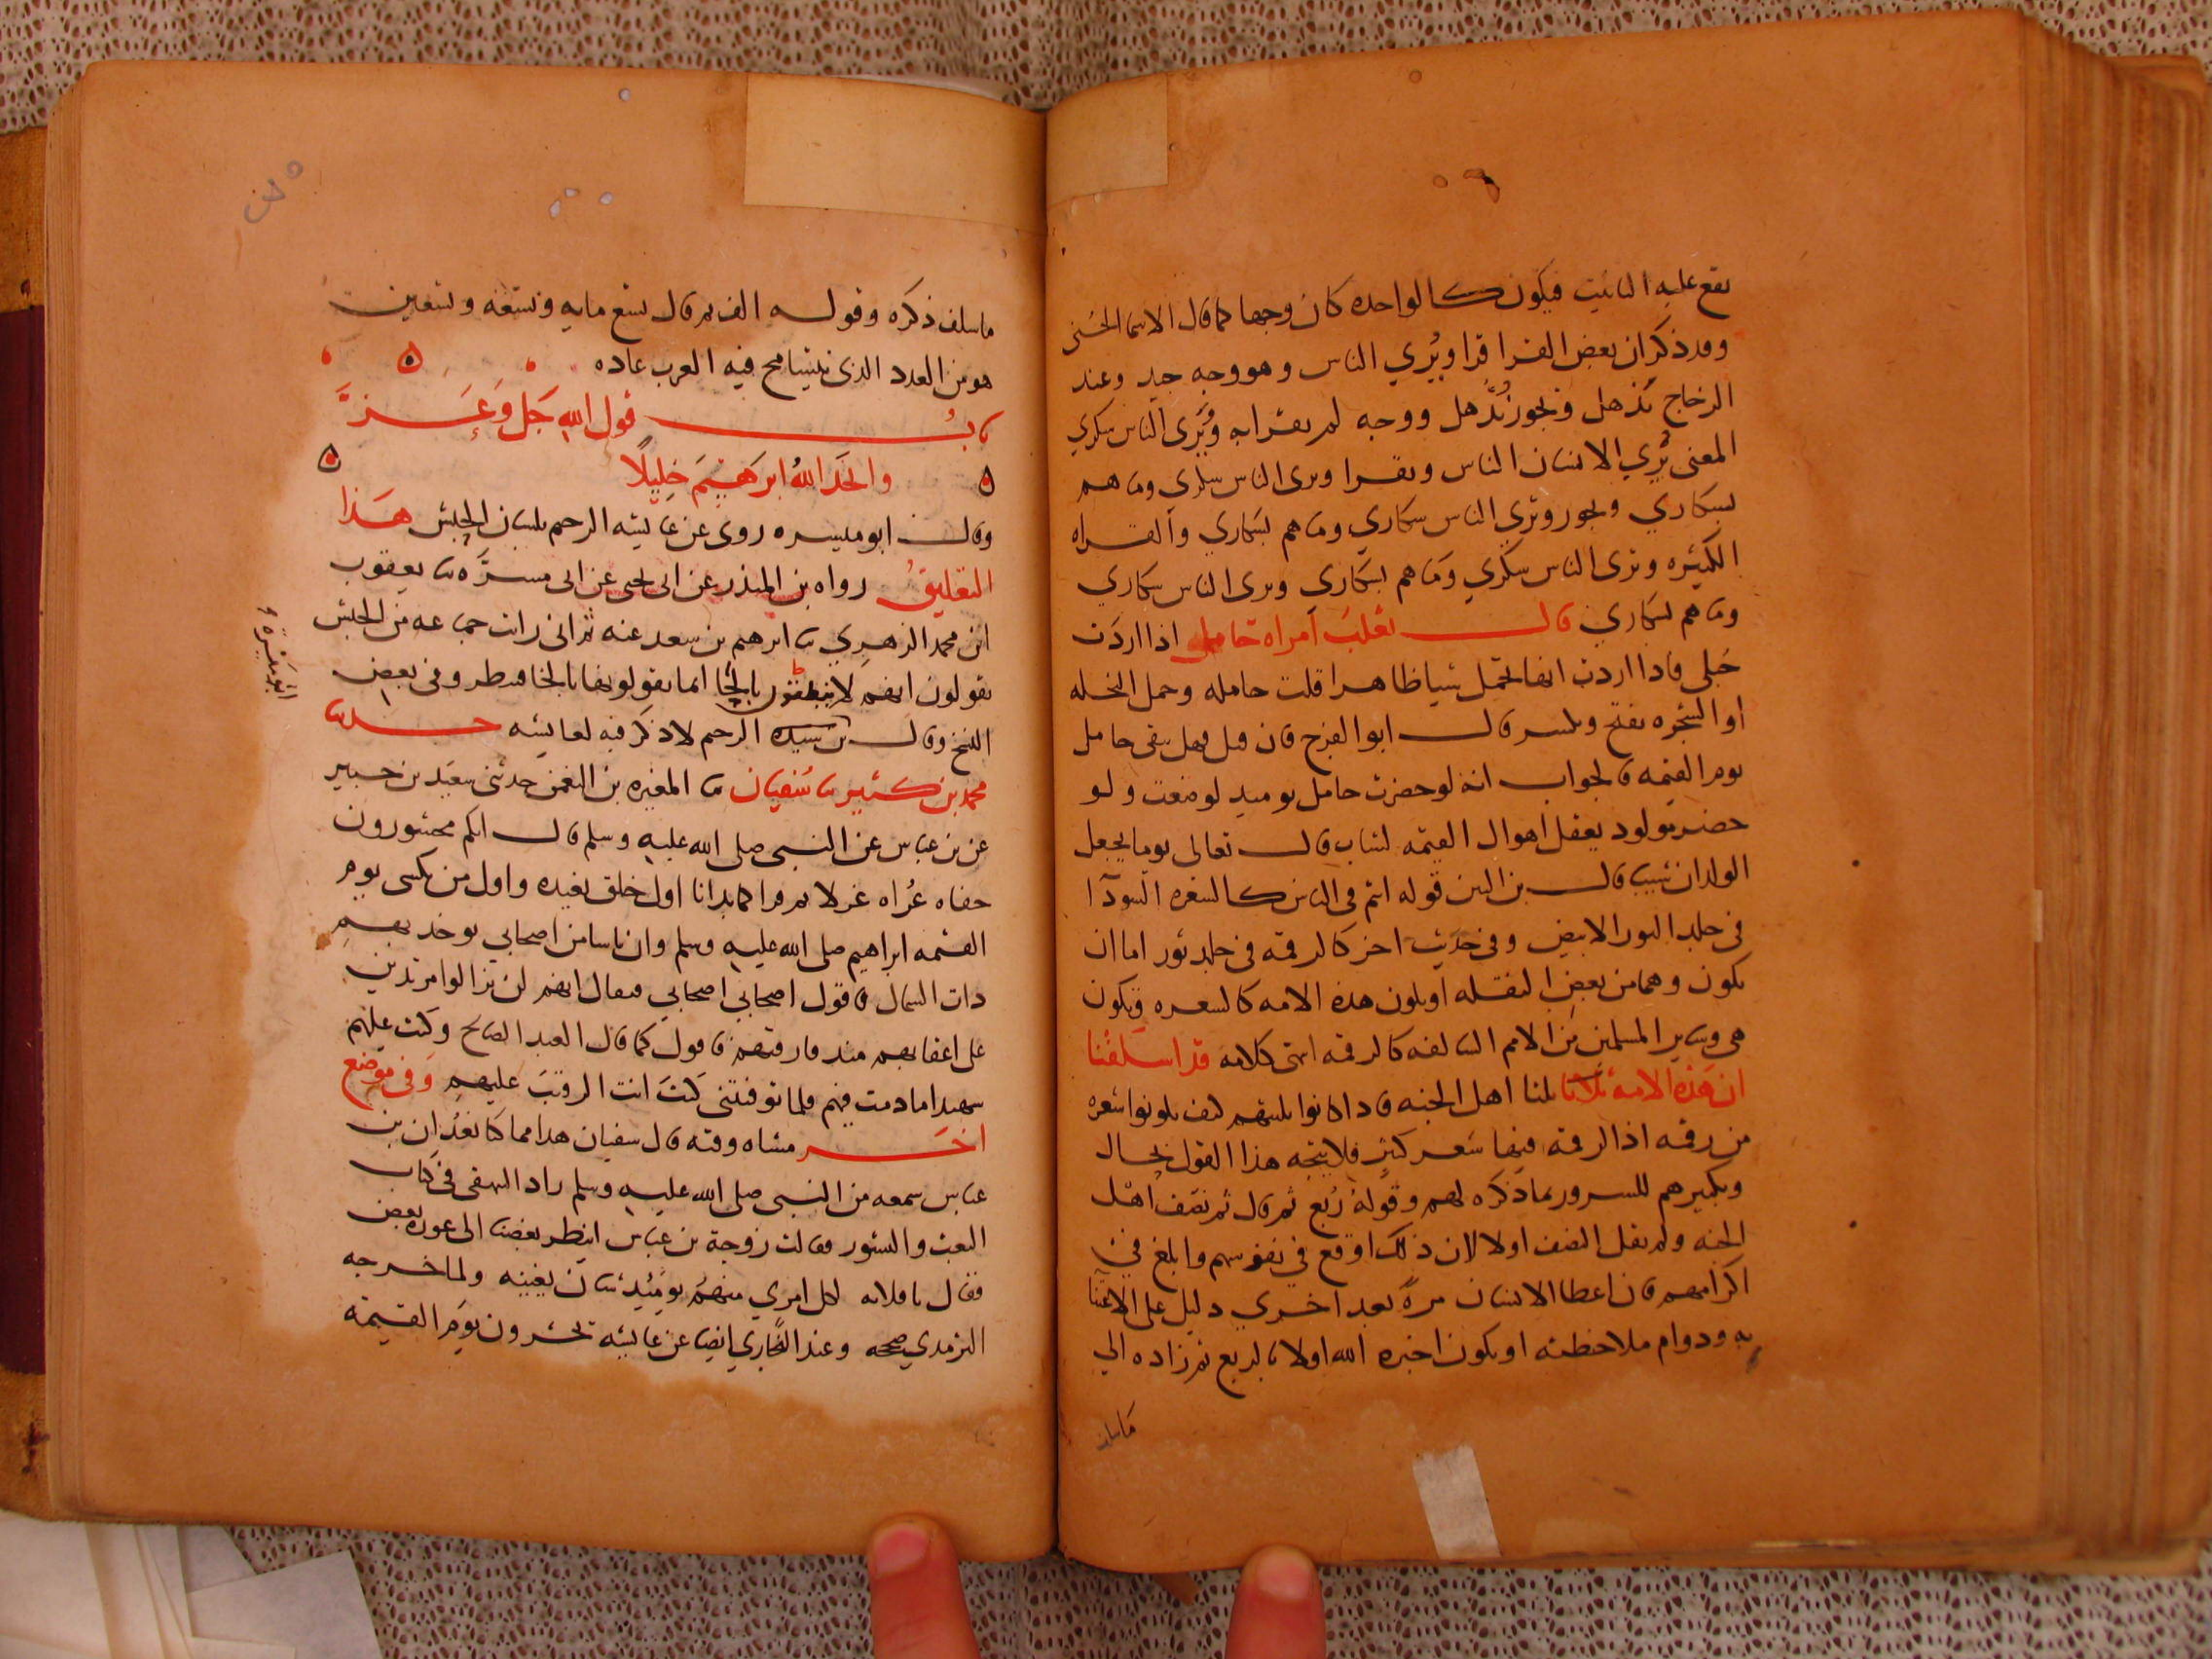 يقع عليه التانيث فيكون كالواحده كان وجها كما قال الاسما الحسنى
وقد ذكر ان بعض القرا قرا ويُري الناس وهو وجه جيد وعند
الزجاج تذهل ويجوز تُذهل ووجه لم يقرا به وتُرى الناس سكري
المعنى تُري الانسان الناس ويقرا وترى الناس سكري وما هم
بسكاري ويجوز وتري الناس سكاري وما هم بسكاري والقراه
الكثيره وترى الناس سكري وما هم بسكاري وترى الناس سكاري
وما هم بسكاري قال ثعلب امراه حامل اذا اردت
حبلى فاذا اردت انها تحمل شيا ظاهرا قلت حامله وحمل النخله
او الشجره يفتح ويكسر قال ابو الفرج فان قيل فهل يبقى حامل
يوم القيمه فالجواب انه لو حضرت حامل يوميد لوضعت ولو
حضر مولود يعقل اهوال القيمه لشاب قال تعالى يوما يجعل
الولدان شيبا قال بن التين قوله انتم في الناس كالشعره السودا
في جلد الثور الابيض وفي حديث اخر كالرقمه في جلد ثور اما ان
يكون وهما من بعض النقله او يكون هذه الامه كالشعره ويكون
هي وساير المسلمين من الامم السالفه كالرقمه انتهى كلامه قد اسلفنا
ان هذه الامه ثلاثا ثلثا اهل الجنه فاذا كانوا ثلثيهم كيف يكونوا شعره
من رقمه اذ الرقمه فيها شعر كثير فلا يتجه هذا القول بحال
وتكبيرهم للسرور بما ذكره لهم وقوله رُبع ثم قال ثم نصف اهل
الجنه ولم يقل النصف اولا لان ذلك اوقع في نفوسهم وابلغ في
اكرامهم فان اعطا الانسان مرةً بعد اخري دليل على الاعتنا
به ودوام ملاحظته او يكون اخبره الله اولا بالربع ثم زاده الي
ما سلف ذكره وقوله الف ثم قال تسع مايه وتسعه وتسعين
هو من العدد الذى يتسامح فيه العرب عاده
باب قول الله جَل وَعَزَّ
واتخذ اللهُ ابرهيمَ خليلًا
وقال ابو ميسره روى عن عايشه الرحيم بلسان الحبش هذا
التعليق رواه بن المنذر عن ابي يحيى عن ابي مسرَّه يعقوب
ابن محمد الزهري ابرهيم بن سعد عنه انى رايت جماعه من الحبش
يقولون انهم لا ينطقون بالحا انما يقولونها بالخا وفى بعض
النسخ وقال بن سيده الرحيم لا ذكر فيه لعايشه حدثنا
محمد بن كثير سُفيان المغيره بن النعمن حدثني سعيد بن جبير
عن بن عباس عن النبي صلى الله عليه وسلم قال انكم محشورون
حفاه عُراه غرلا ثم قرا كما بدانا اول خلق نعيده واول من يكسى يوم
القيمه ابراهيم صلى الله عليه وسلم وان ناسا من اصحابي يوخذ بهم
ذات الشمال فاقول اصحابي اصحابي فيقال انهم لن يزالوا مرتدين
على اعقابهم منذ فارقتهم فاقول كما قال العبد الصالح وكنت عليهم
شهيدا ما دمت فيهم فلما توفيتني كنتَ انت الرقيب عليهم وفي موضع
اخر مثناه وفيه قال سفيان هذا مما كنا نعُد ان بن
عباس سمعه من النبي صلى الله عليه وسلم زاد البيهقى في كتاب
البعث والنشور فقالت زوجة بن عباس اينظر بعضنا الى عوره بعض
فقال يا فلانه لكل امري منهم يوميذ شان يغنيه ولما خرجه
الترمذي صححه وعند البخاري ايضا عن عايشه تحشرون يوم القيمه